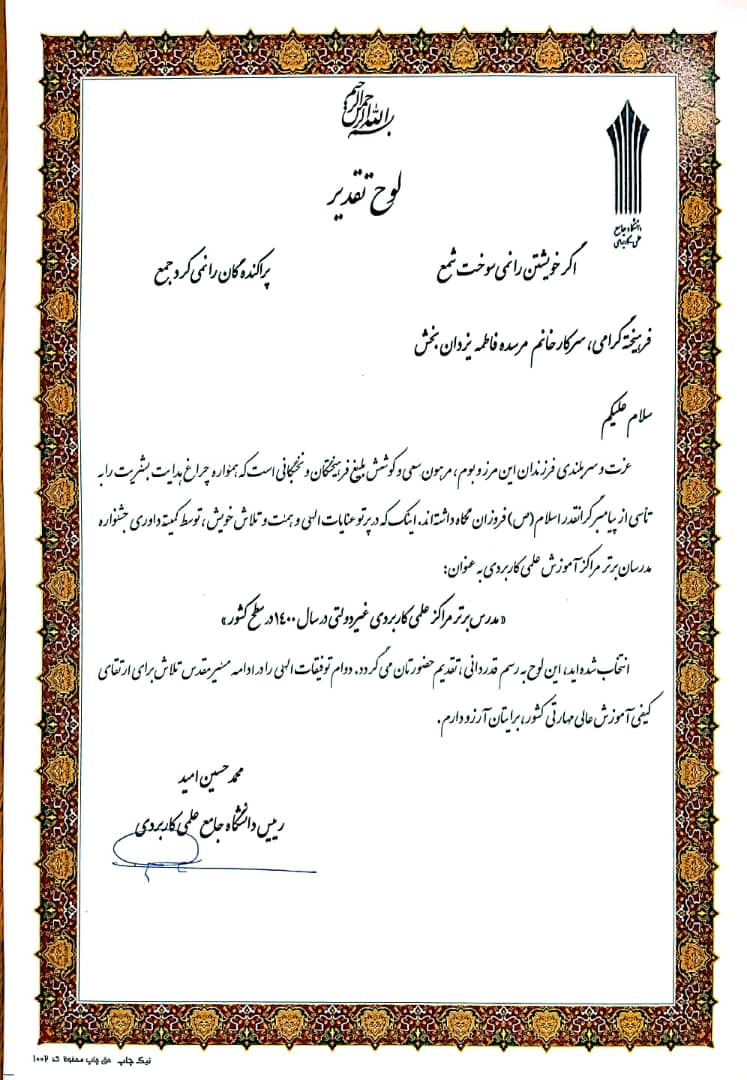 بسم الله الرحمن الرحیم
دانشگاه جامع
علمی کاربردی
لوح تقدیر
اگر خویشتن را نمی سوخت شمع پراکنده گان را نمی کرد جمع
فرهیخته گرامی، سرکار خانم مرسده فاطمه یزدان بخش
سلام علیکم
عزت و سربلندی فرزندان این مرز و بوم، مرهون سعی و کوشش بلیغ فرهیختگان و نخبگانی است که همواره چراغ هدایت بشریت را به
تأسی از پیامبر گرانقدر اسلام (ص) فروزان نگاه داشته‌اند. اینک که در پرتو عنایات الهی و همت و تلاش خویش، توسط کمیته داوری جشنواره
مدرسان برتر مراکز آموزش علمی کاربردی به عنوان:
«مدرس برتر مراکز علمی کاربردی غیردولتی در سال ۱۴۰۰ در سطح کشور»
انتخاب شده‌اید، این لوح به رسم قدردانی، تقدیم حضورتان می گردد. دوام توفیقات الهی را در ادامه مسیر مقدس تلاش برای ارتقای
کیفی آموزش عالی مهارتی کشور، برایتان آرزو دارم.
محمد حسین امید
رییس دانشگاه جامع علمی کاربردی
نیک چاپ حق چاپ محفوظ کد ۱۰۰۲